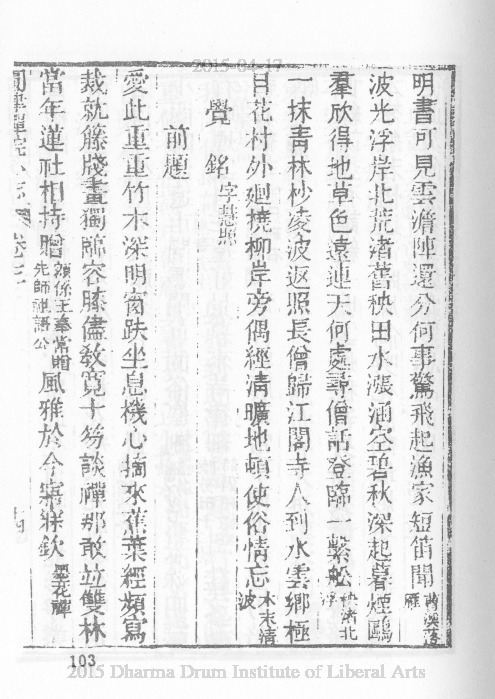 2015-04-17
明書可見雲澹陣還分何事驚飛起漁家短笛聞
波光浮岸北荒渚舊秧田水漲涵空碧秋深起暮煙鷗
羣欣得地草色遠連天何處尋僧話登臨一繫船
一抹青林杪凌波返照長僧歸江閣寺人到水雲鄉極
目花村外廻撓柳岸旁偶經清曠地頓使俗情忘 木末清波
覺銘 字慧照
前題
愛此重重竹木深明窗趺坐息機心摘來蕉葉經頻寫
裁就籐牋畫獨臨容膝儘教寬十笏談禪那敢並雙林
當年蓮社相持贈 額係王奉常贈先師祖語公 風雅於今寀寐欽
禪院小志 卷三
103
2015 Dharma Drum Institute of Liberal Arts